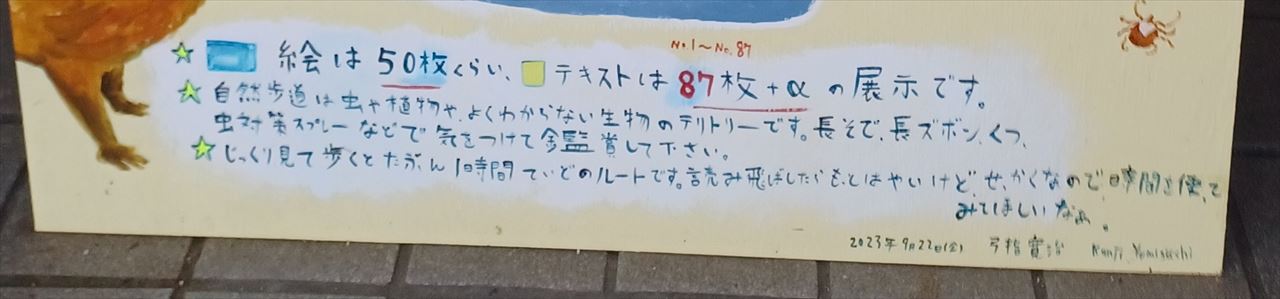 No.1〜No.87
☆ 絵は50枚くらい、テキストは87枚+αの展示です。
☆自然歩道は虫や植物や、よくわからない生物のテリトリーです。長そで、長ズボン、くつ、
虫対策スプレーなどで気をつけて鑑賞して下さい。
☆じっくり見て歩くとたぶん1時間ていどのルートです。読み飛ばしたらもっとはやいけど、せっかくなので時間を使って
みてほしいなぁ。
2023年9月22日(金) 弓指寛治 Kanji Yumisashi